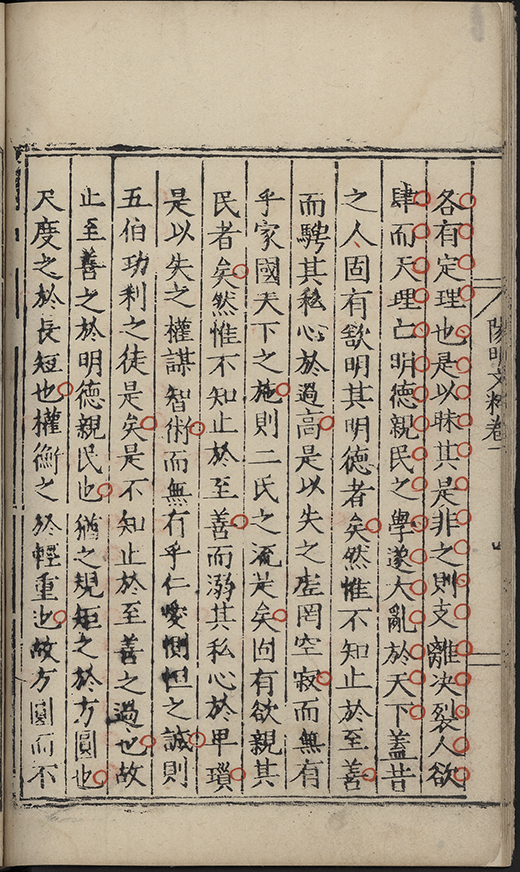 陽明文粹卷一
各有定理也是以昧其是非之則支離決裂人欲
肆而天理亡明德親民之學遂大亂於天下蓋昔
之人固有欲明其明德者矣然惟不知止於至善
而騁其私心於過高是以失之虛罔空寂而無有
乎家國天下之施則二氏之流是矣固有欲親其
民者矣然惟不知止於至善而溺其私心於卑瑣
是以失之權謀智術而無有乎仁愛惻怛之誠則
五伯功利之徒是矣是不知止於至善之過也故
止至善之於明德親民也猶之規矩之於方圓也
尺度之於長短也權衡之於輕重也故方圓而不